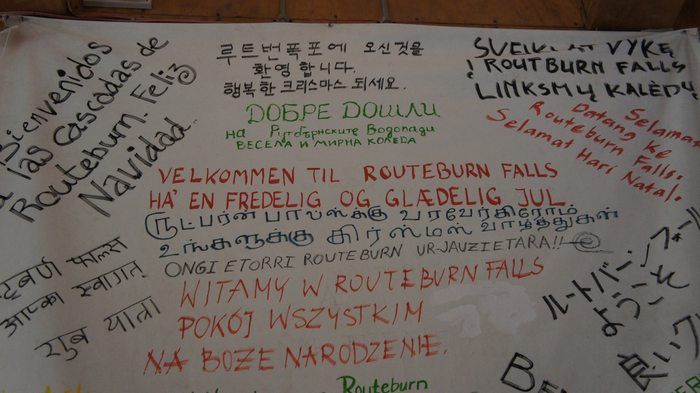 Bienvenidos
a las Cascadas de
Routeburn. Feliz
Navidad.
루트번폭포에 오신것을
환영합니다.
행복한 크리스마스 되세요.
SVEIKI ATVYKĘ
Į ROUTBURN FALLS
LINKSMŲ KALĖDŲ
ДОБРЕ ДОШЛИ
на Рутбърнските Водопади
ВЕСЕЛА И МИРНА КОЛЕДА
Selamat
Datang ke
Routeburn Falls.
Selamat Hari Natal.
VELKOMMEN TIL ROUTEBURN FALLS
HA' EN FREDELIG OG GLÆDELIG JUL.
ரூட்பர்ன் பால்ஸ்க்கு வரவேற்கிறோம்
உங்களுக்கு கிர்ஸ்மஸ் வாழ்த்துகள்
ONGI ETORRI ROUTEBURN UR-JAUZIETARA!!
फाल्स
आपका स्वागत
शुब यात्रा
WITAMY W ROUTEBURN FALLS
POKÓJ WSZYSTKIM
NA BOŻE NARODZENIE.
ルートバーンフォール
ようこそ
良いク
Routeburn